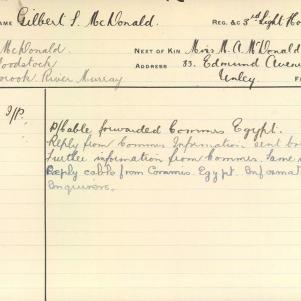 NAME Gilbert S. McDonald. REG. & C 3rd Light Ho
McDonald NEXT OF KIN Mrs M. A. McDonald
Woodstock ADDRESS 33. Edmund Avenu
brook River Murray Unley.
I/P.
P/Cable forwarded Commrs Egypt.
Reply from Commrs Information sent
Further information from Commrs. Same
Reply cable from Commrs. Egypt. Informat
Enquirers.